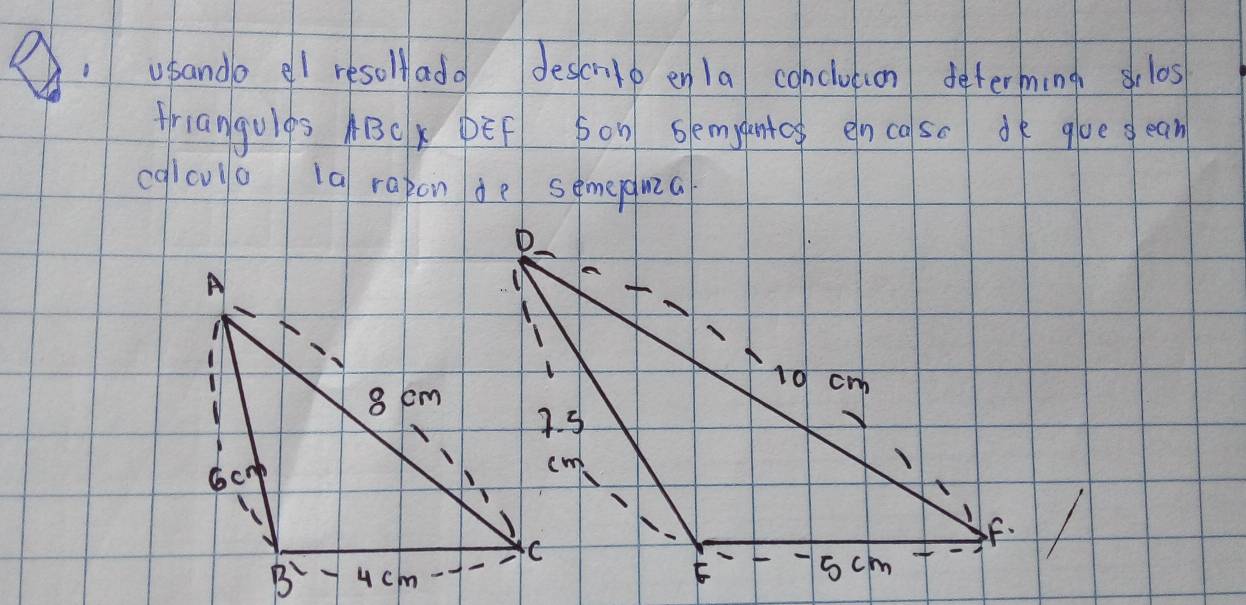 usando el resoltado descrito en la conclucion determina si los
triangulos ABC y DEF son semejantes en caso de que sean
calcula la razon de semejanza.
D
A
10 cm
8 cm
7.5
cm
6 cm
F.
C
B
4 cm
E
5 cm